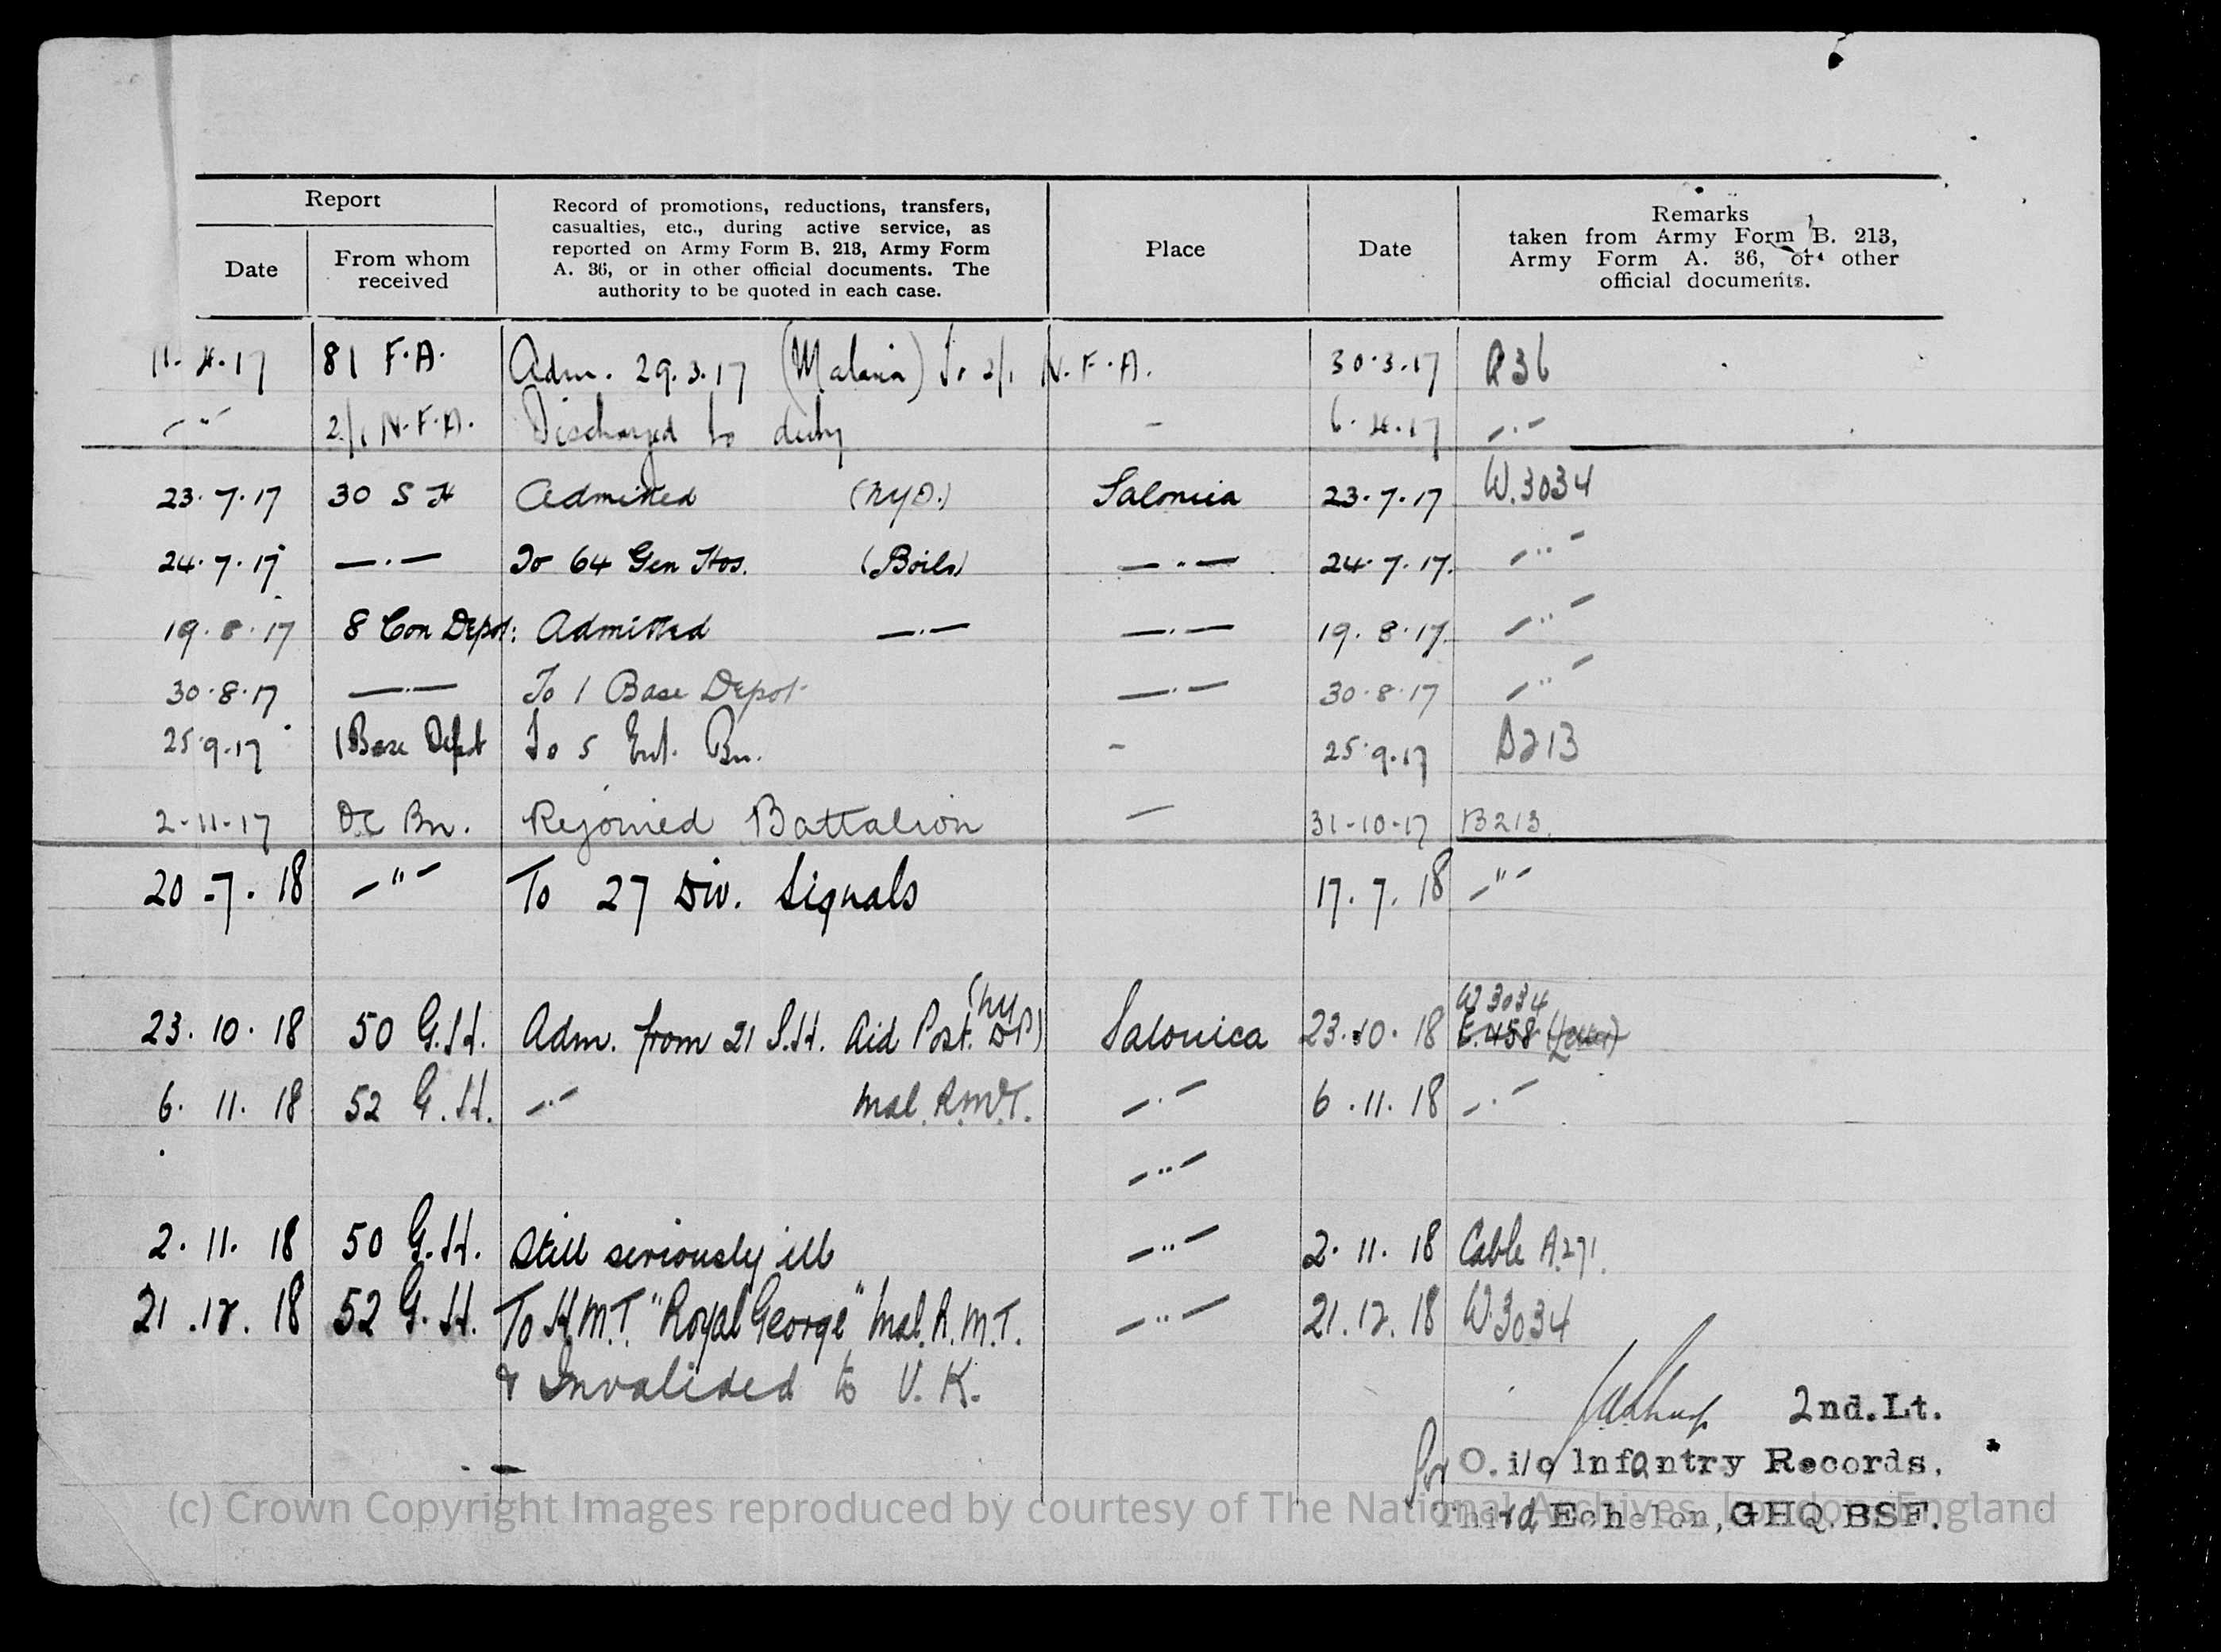 Report
Date
From whom
received
Record of promotions, reductions, transfers,
casualties, etc., during active service, as
reported on Army Form B. 213, Army Form
A. 36, or in other official documents. The
authority to be quoted in each case.
Place
Date
Remarks
taken from Army Form B. 213,
Army Form A. 36, or other
official documents.
11.4.17 81 F.A. Adm. 29.3.17 (Malaria) To 2/1 N.F.A. 30.3.17 A36
-"- 2/1 N.F.A. Discharged to duty - 6.4.17 -"-
23.7.17 30 S H Admitted (NYD.) Salonica 23.7.17 W.3034
24.7.17 -"- To 64 Gen Hos. (Boils) -"- 24.7.17. -"-
19.8.17 8 Con Depot: Admitted -"- -"- 19.8.17. -"-
30.8.17 -"- To 1 Base Depot -"- 30.8.17 -"-
25.9.17 1 Base Depot To 5 Ent. Bn. - 25.9.17 B213
2-11-17 OC Bn. Rejoined Battalion - 31-10-17 B213.
20-7.18 -"- To 27 Div. Signals 17.7.18 -"-
23.10.18 50 G.H. Adm. from 21 S.H. Aid Post. (NYD) Salonica 23.10.18 W3034
E.458 (Letter)
6.11.18 52 G.H. -"- Mal. R.M.T. -"- 6.11.18 -"-
-"-
2.11.18 50 G.H. Still seriously ill -"- 2.11.18 Cable A.271.
21.12.18 52 G.H. To H.M.T. "Royal George" Mal. R.M.T. -"- 21.12.18 W3034
& Invalided to U.K.
2nd.Lt.
For O. i/c Infantry Records.
Third Echelon, GHQ. BSF.
(c) Crown Copyright Images reproduced by courtesy of The National Archives, London, England